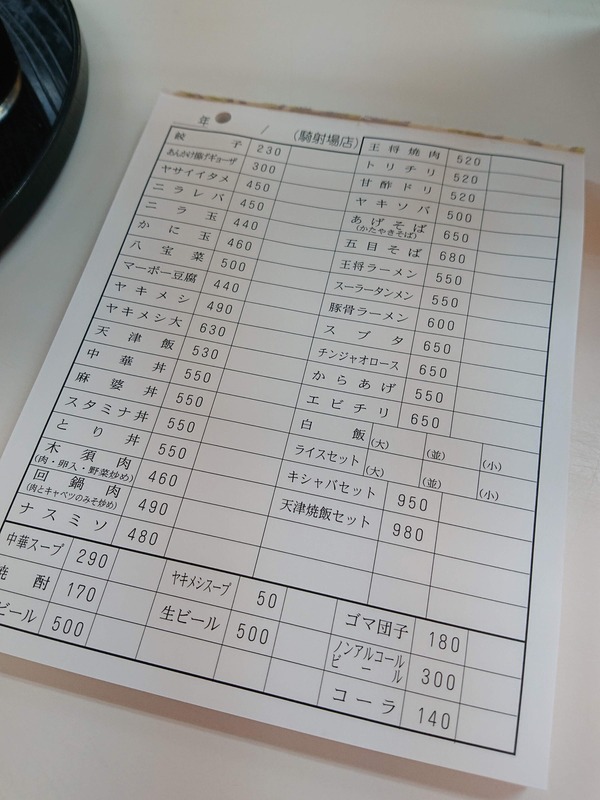 年 / (騎射場店)
餃子 230
あんかけ揚げギョーザ 300
ヤサイイタメ 450
ニラレバ 450
ニラ玉 440
かに玉 460
八宝菜 500
マーボー豆腐 440
ヤキメシ 490
ヤキメシ大 630
天津飯 530
中華丼 550
麻婆丼 550
スタミナ丼 550
とり丼 550
木須肉 460
(肉・卵入・野菜炒め)
回鍋肉 490
(肉とキャベツのみそ炒め)
ナスミソ 480
王将焼肉 520
トリチリ 520
甘酢ドリ 520
ヤキソバ 500
あげそば 650
(かたやきそば)
五目そば 680
王将ラーメン 550
スーラータンメン 550
豚骨ラーメン 600
スブタ 650
チンジャオロース 650
からあげ 550
エビチリ 650
白飯 (大) (並) (小)
ライスセット (大) (並) (小)
キシャバセット 950
天津焼飯セット 980
中華スープ 290 ヤキメシスープ 50 ゴマ団子 180
焼酎 170 生ビール 500 ノンアルコール
ビール 300
ビール 500 コーラ 140